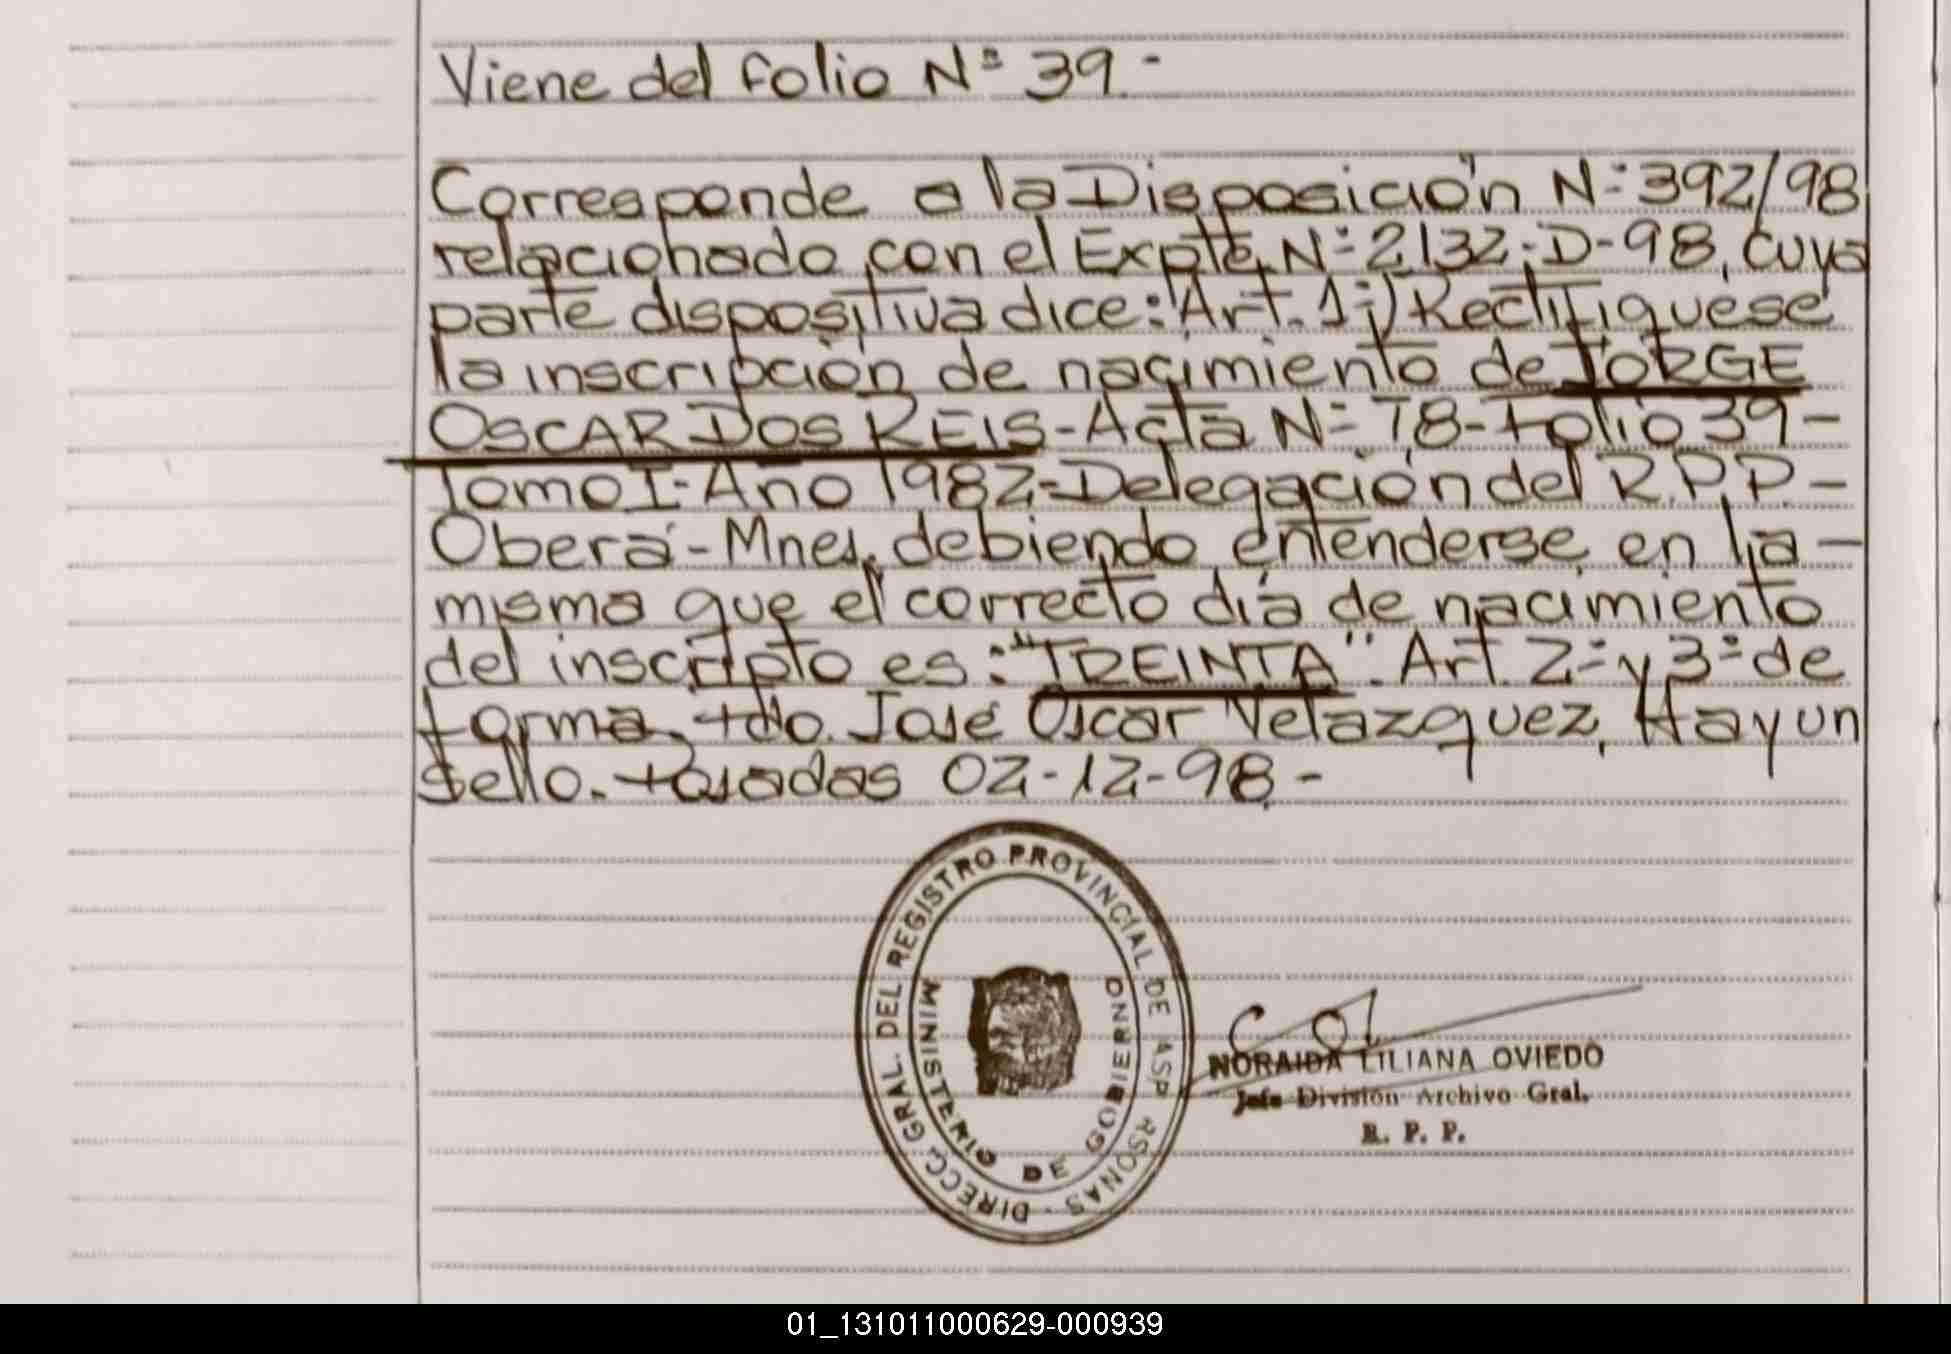 Viene del folio Nº 39.-
Corresponde a la Disposición Nº 392/98
relacionado con el Expte. Nº 2132-D-98, cuya
parte dispositiva dice: "Art. 1º) Rectifíquese
la inscripción de nacimiento de JORGE
OSCAR DOS REIS-Acta Nº 78-Folio 39-
Tomo I-Año 1982-Delegación del R.P.P.-
Oberá-Mnes. debiendo entenderse en la-
misma que el correcto día de nacimiento
del inscripto es: "TREINTA". Art. 2º y 3º de
forma. Fdo. José Oscar Velazquez. Hay un
Sello. Posadas 02-12-98.-
DIRECC. GRAL. DEL REGISTRO PROVINCIAL DE
MINISTERIO DE GOBIERNO
NORAIDA LILIANA OVIEDO
Jefe División Archivo Gral.
R. P. P.
01_131011000629-000939